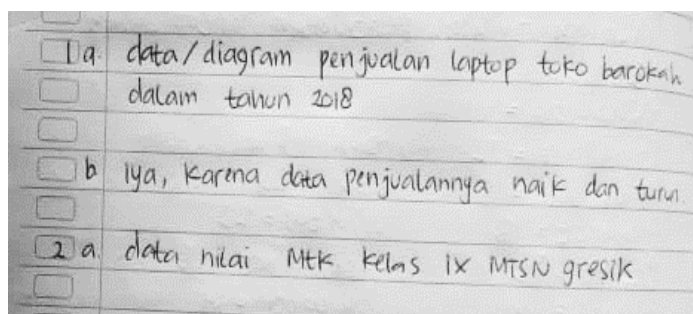 1 a. data/diagram penjualan laptop toko barokah
dalam tahun 2018
b iya, karena data penjualannya naik dan turun.
2 a. data nilai Mtk kelas ix MTSN gresik